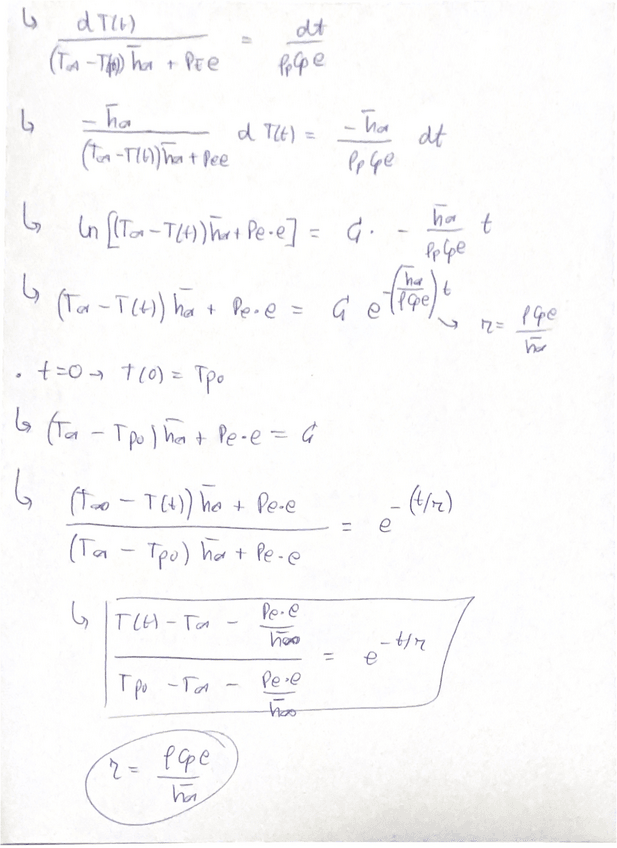 ↳ dT(t) / ((T∞ - T(t)) h̄∞ + Pe e) = dt / (ρp Cp e)
↳ -h̄∞ / ((T∞ - T(t)) h̄∞ + Pe e) d T(t) = -h̄∞ / (ρp Cp e) dt
↳ ln [(T∞ - T(t)) h̄∞ + Pe·e] = G · - h̄∞ / (ρp Cp e) t
↳ (T∞ - T(t)) h̄∞ + Pe·e = G e^-(h̄∞ / (ρ Cp e)) t → τ = ρ Cp e / h̄∞
• t=0 → T(0) = Tp0
↳ (T∞ - Tp0) h̄∞ + Pe·e = G
↳ ((T∞ - T(t)) h̄∞ + Pe·e) / ((T∞ - Tp0) h̄∞ + Pe·e) = e^-(t/τ)
↳ (T(t) - T∞ - Pe·e / h̄∞) / (Tp0 - T∞ - Pe·e / h̄∞) = e^-t/τ
τ = ρ Cp e / h̄∞